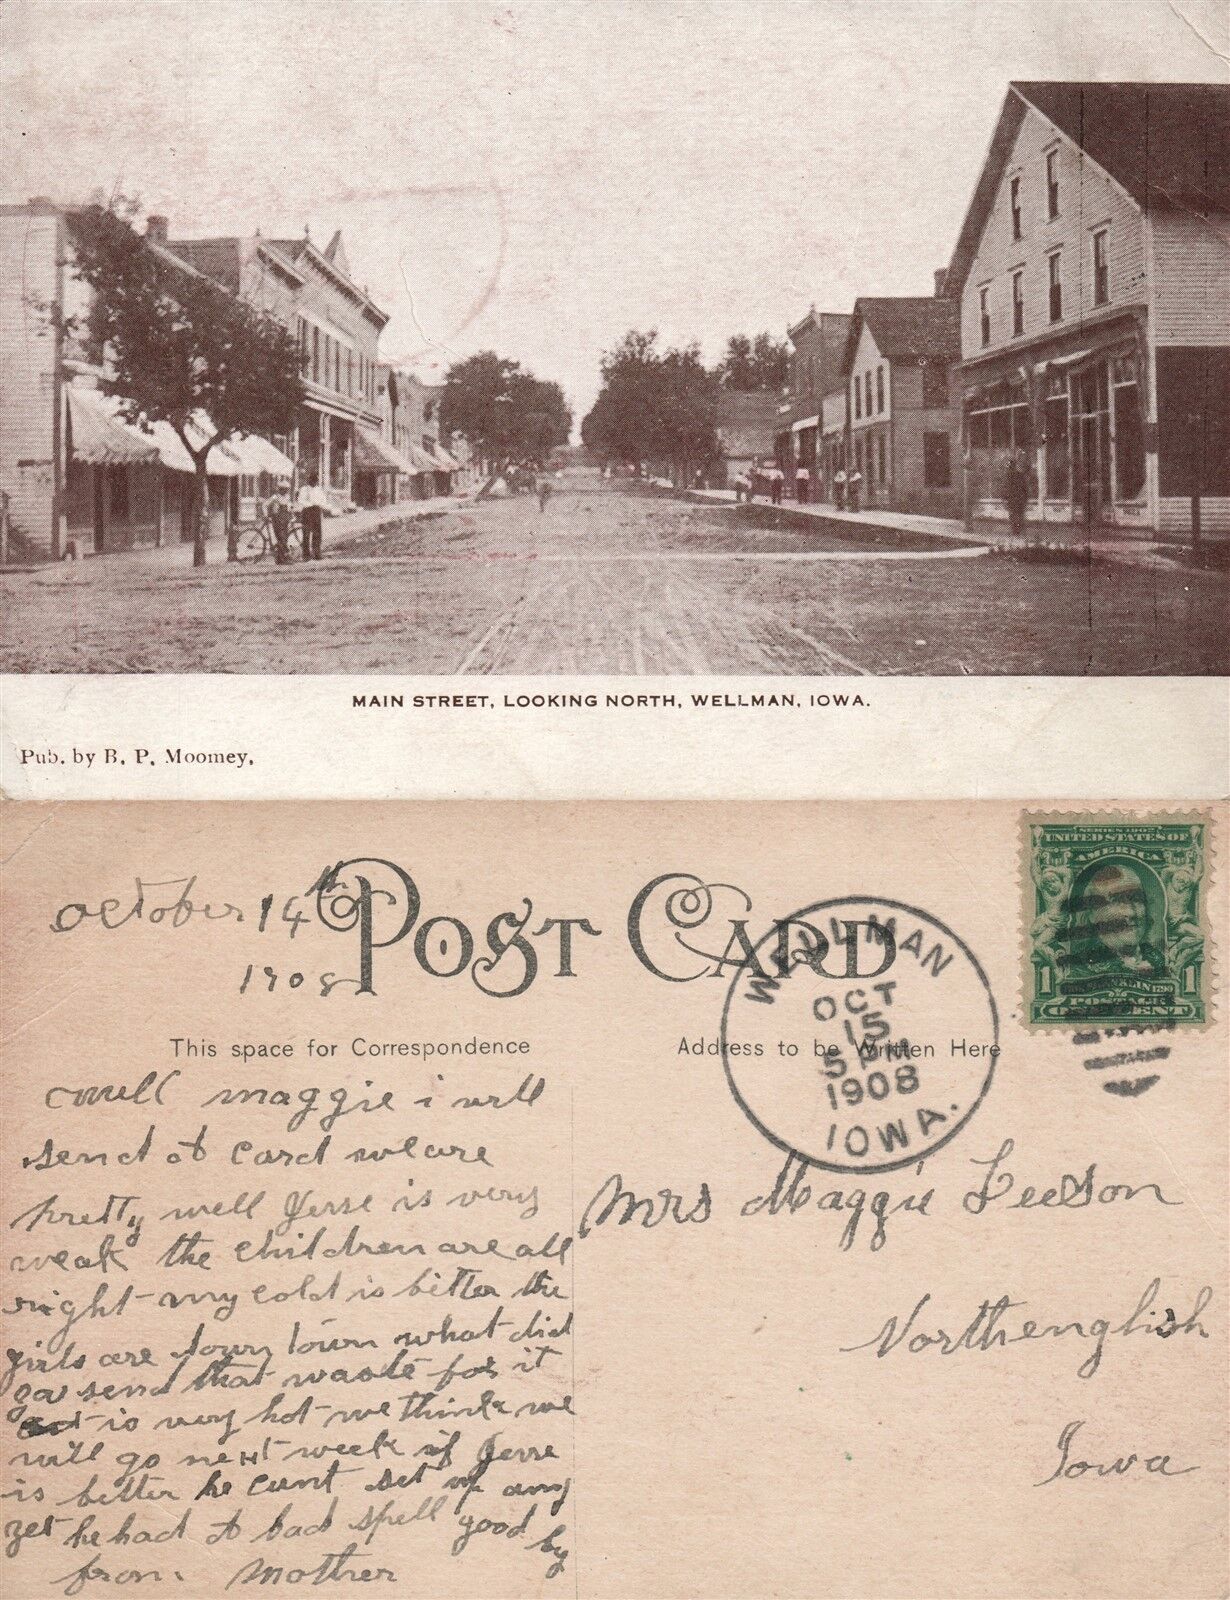 MAIN STREET, LOOKING NORTH, WELLMAN, IOWA.
Pub. by B. P. Moomey,
October 14th
1908
POST CARD
This space for Correspondence
Address to be Written Here
SERIES 1902
UNITED STATES OF
AMERICA
1 1
POSTAGE
ONE CENT
WELLMAN
OCT
15
5 PM
1908
IOWA.
well maggie i will
send a card we are
pretty well Jesse is very
weak the children are all
right my cold is better the
girls are down town what did
send that waste for it
is very hot we think we
will go next week if Jesse
is better he cant set up any
yet he had a bad spell good by
from Mother
Mrs Maggie Leeson
North english
Iowa